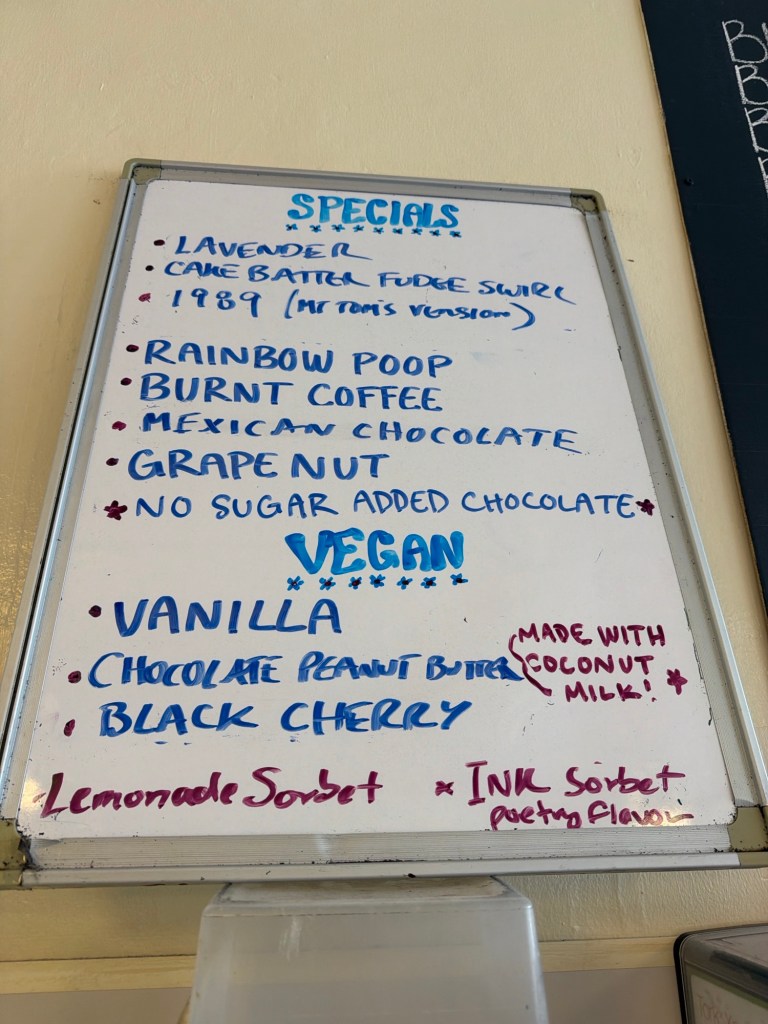 SPECIALS
• LAVENDER
• CAKE BATTER FUDGE SWIRL
• 1989 (Mr Tom's version)
• RAINBOW POOP
• BURNT COFFEE
• MEXICAN CHOCOLATE
• GRAPE NUT
* NO SUGAR ADDED CHOCOLATE *
VEGAN
• VANILLA
• CHOCOLATE PEANUT BUTTER
• BLACK CHERRY
MADE WITH
COCONUT
MILK! *
Lemonade Sorbet
* INK Sorbet
poetry flavor